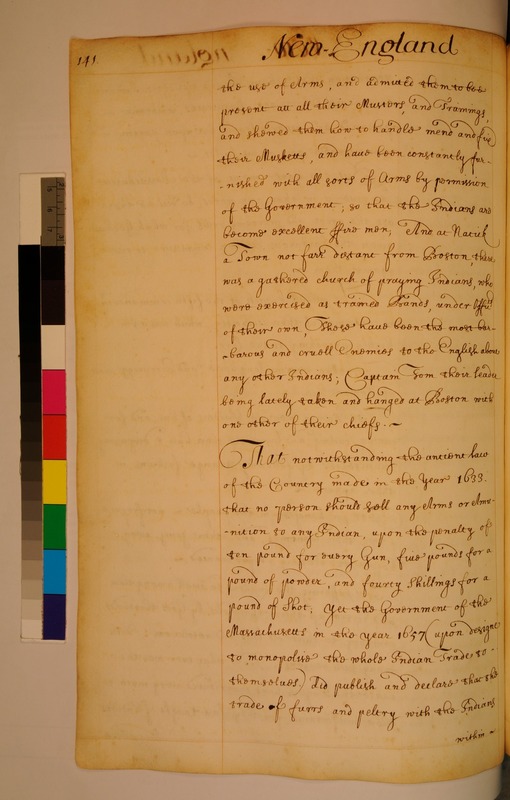 141
New-England
the use of Arms, and admitted them to bee
present att all their Musters, and Trainings,
and shewed them how to handle mend and fix
their Musketts, and have been constantly fur-
-nished with all sorts of Arms by permission
of the Government, so that the Indians are
become excellent ffire men; And at Natick
a Town not farr distant from Boston, there
was a gathered church of praying Indians, who
were exercised as trained Bands, under Offi
of their own, These have been the most bar-
-barous and cruell Enemies to the English above
any other Indians; Captain Tom their leader
being lately taken and hanged at Boston with
one other of their chiefs.
That notwithstanding the ancient law
of the Country made in the year 1633.
that no person should sell any Arms or Amu-
-nition to any Indian, upon the penalty of
ten pound for every Gun, five pounds for a
pound of powder, and fourty shillings for a
pound of Shot; yet the Government of the
Massachusetts in the year 1657 (upon designe
to monopolise the whole Indian Trade to
themselves) did publish and declare that the
trade of furrs and peltry with the Indians
within